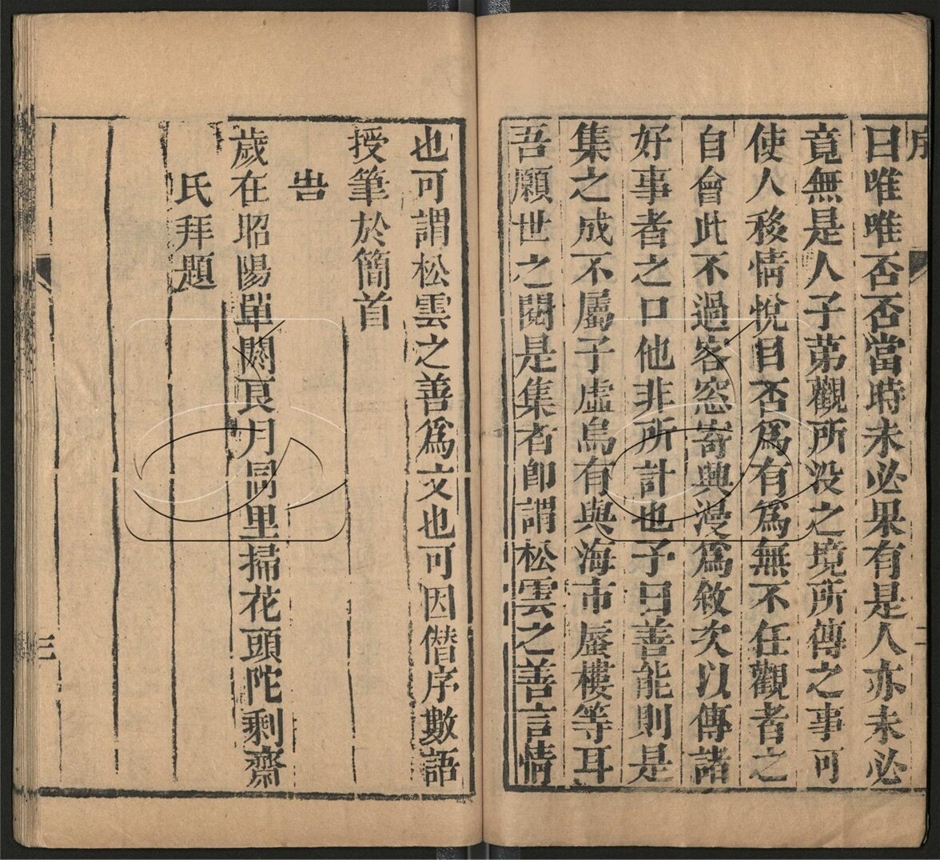 序
曰唯唯否否當時未必果有是人亦未必
竟無是人子苐觀所没之境所傳之事可
使人移情悅目否為有為無不任觀者之
自會此不過客窓寄興漫為敘次以傳諸
好事者之口他非所計也予曰善能則是
集之成不屬子虛烏有與海市蜃樓等耳
吾願世之閱是集者卽謂松雲之善言情
也可謂松雲之善為文也可因僭序數語
授筆於簡首
旹
歲在昭陽單閼良月同里掃花頭陀剩齋
氏拜題
三